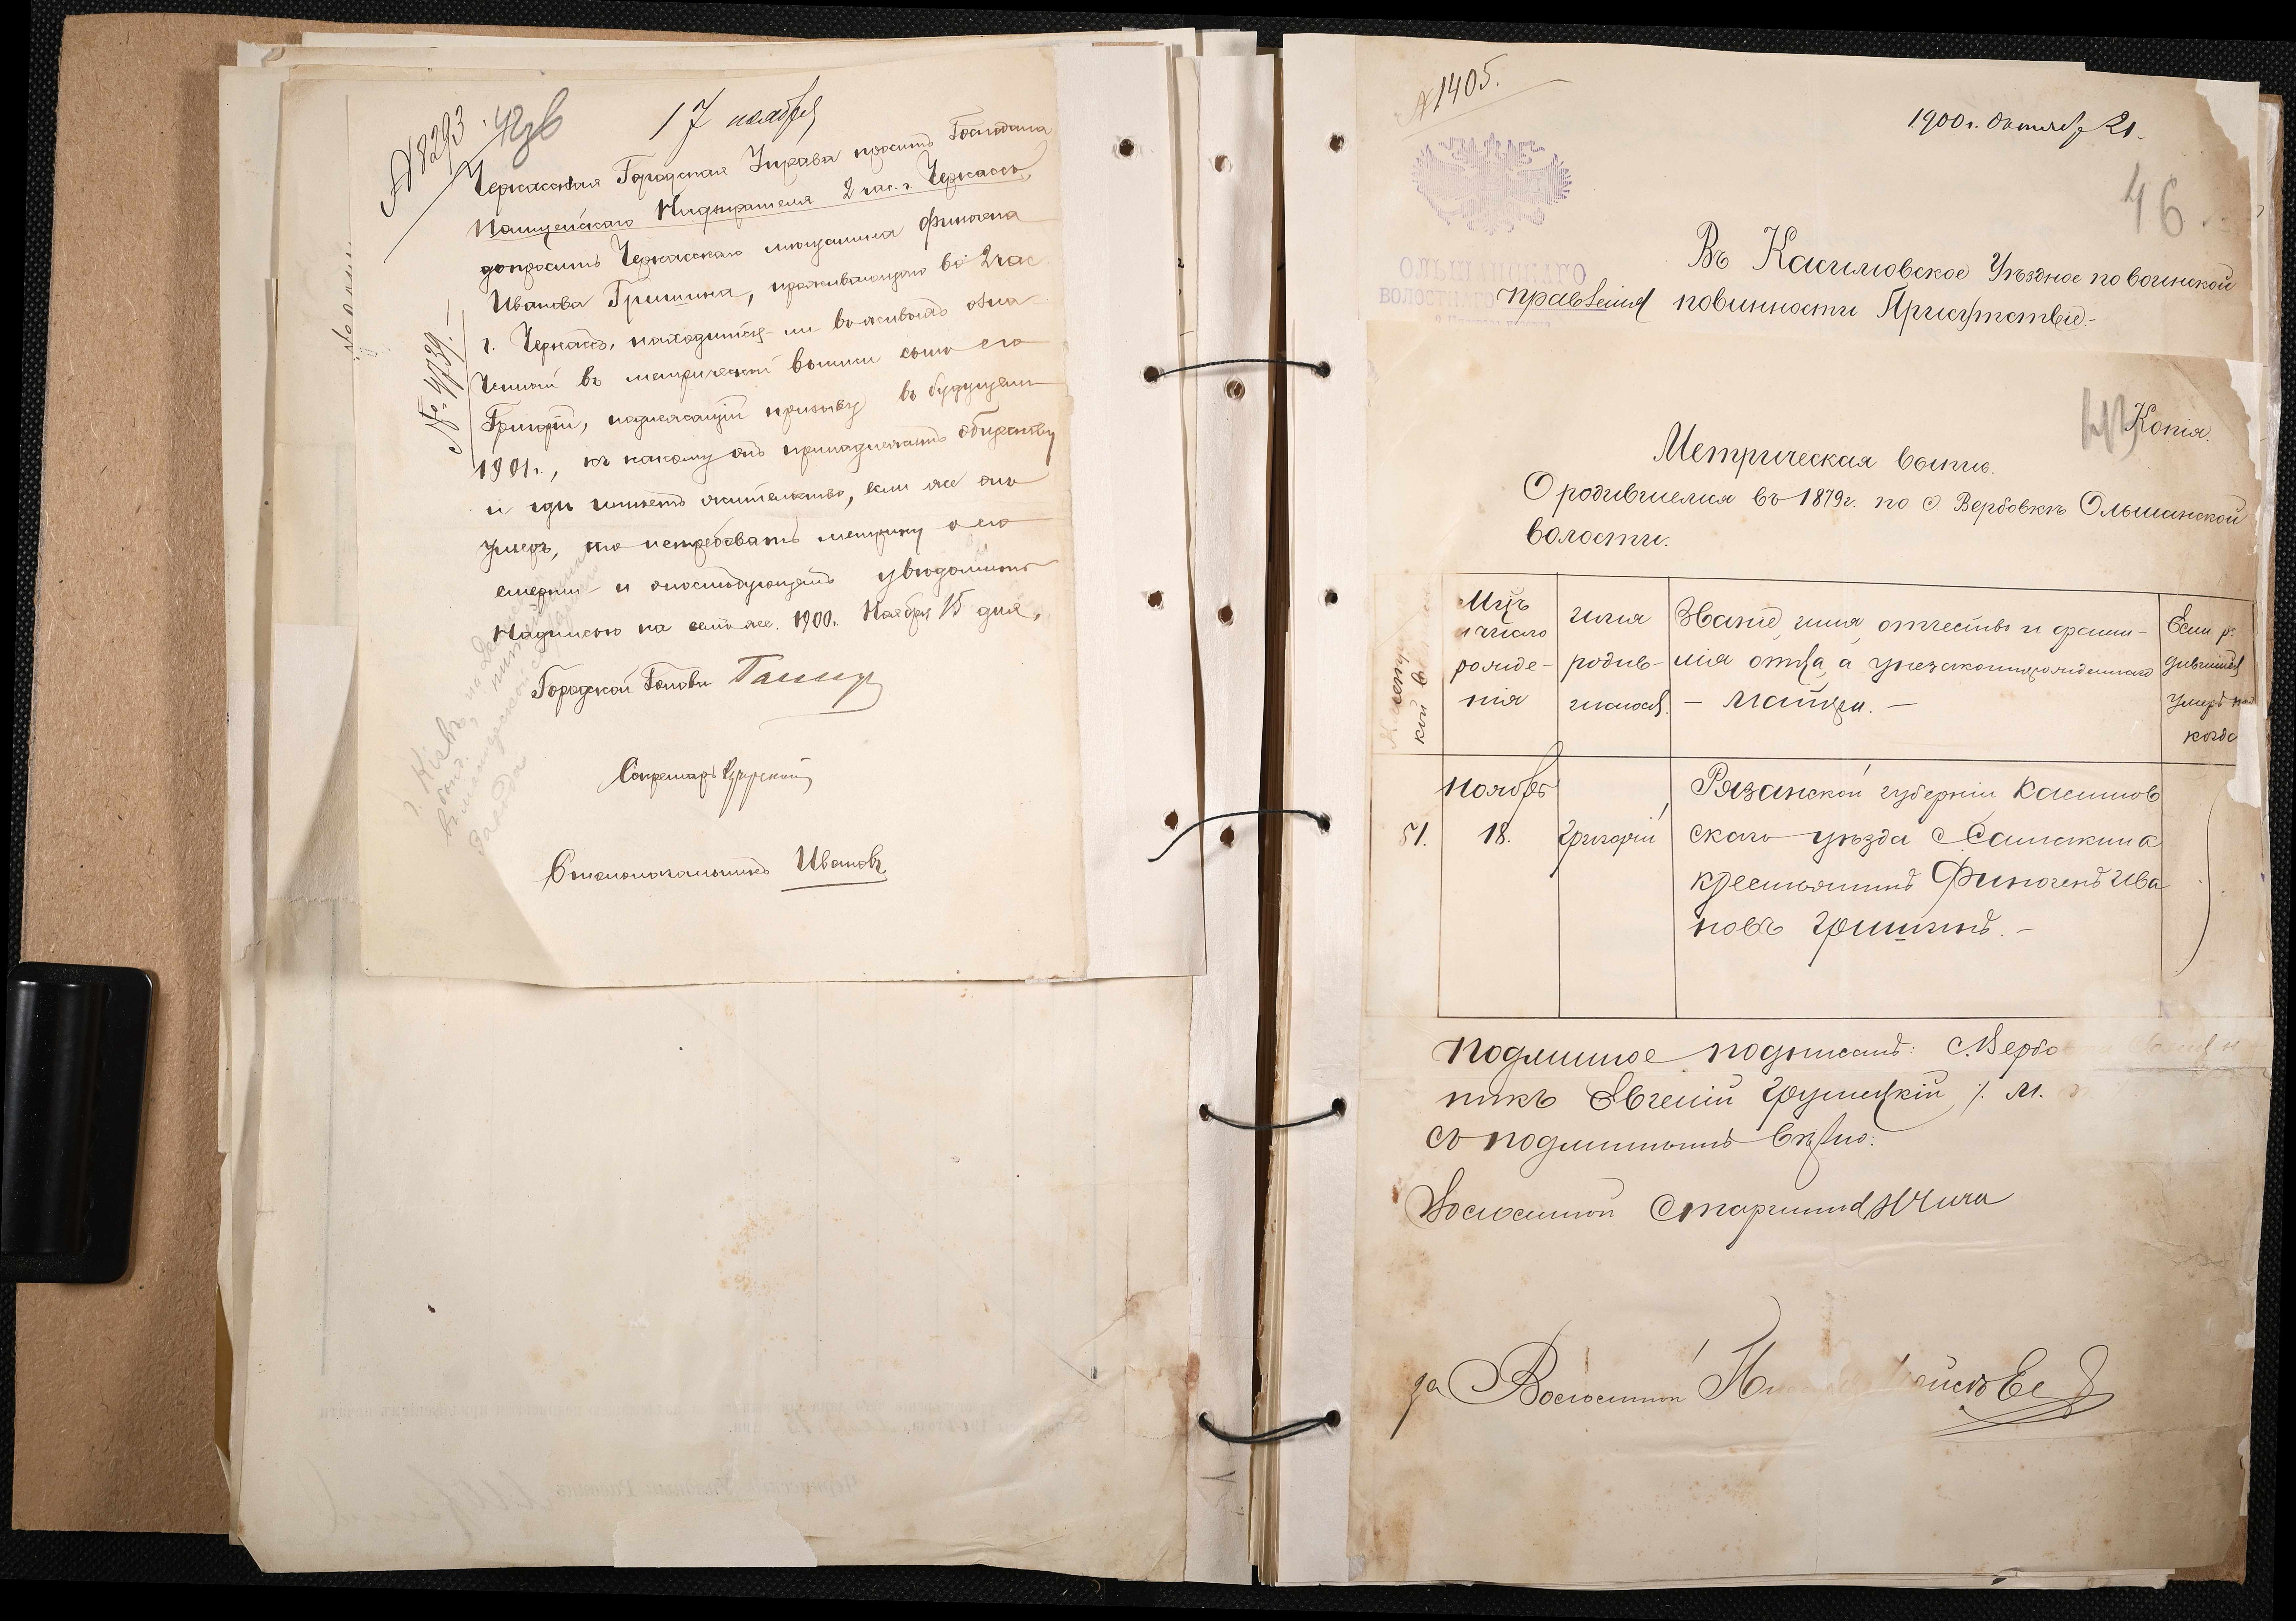 №8293
17 ноября
Черкасская Городская Управа проситъ Господина
Полицейскаго Надзирателя 2 час. г. Черкассъ
допросить Черкасскаго мещанина Финогена
Иванова Гришина, проживающаго во 2 час.
г. Черкассъ, находится-ли въ живыхъ озна-
ченный въ метрической выписи сынъ его
Григорій, подлежащій призыву въ будущемъ
1901 г., къ какому онъ принадлежитъ обществу
и гдѣ имѣетъ жительство, если же онъ
умеръ, то истребовать метрику о его
смерти и о послѣдующемъ увѣдомить
Надписью на семъ же. 1900 г. Ноября 15 дня.
№ 4739.
Городской Голова
Секретарь
Столоначальникъ Ивановъ
г. Кіевъ, на
№1405.
1900 г. Октября 21.
46
ОЛЬШАНСКАГО
ВОЛОСТНАГО
правленія
Въ Касимовское Уѣздное по воинской
повинности Присутствіе.-
Копія.
Метрическая выпись.
О родившемся въ 1879 г. по с. Вербовкѣ Ольшанской
волости.
Мцъ и число рожде-нія
имя родив-шагося.
Званіе, имя, отчество и фами-лія отца, а у незаконнорожденнаго - матери. -
Если ро-дившійся умеръ то когда
51.
Ноября 18.
Григорій
Рязанской губерніи Касимов
скаго уѣзда с.
крестьянинъ Финогенъ Ива
новъ Гришинъ. -
Подлинное подписалъ: С. Вербо
никъ Евгеній Грушецкій /. М.
Съ подлиннымъ вѣрно:
Волостной Старшина
за Волостной